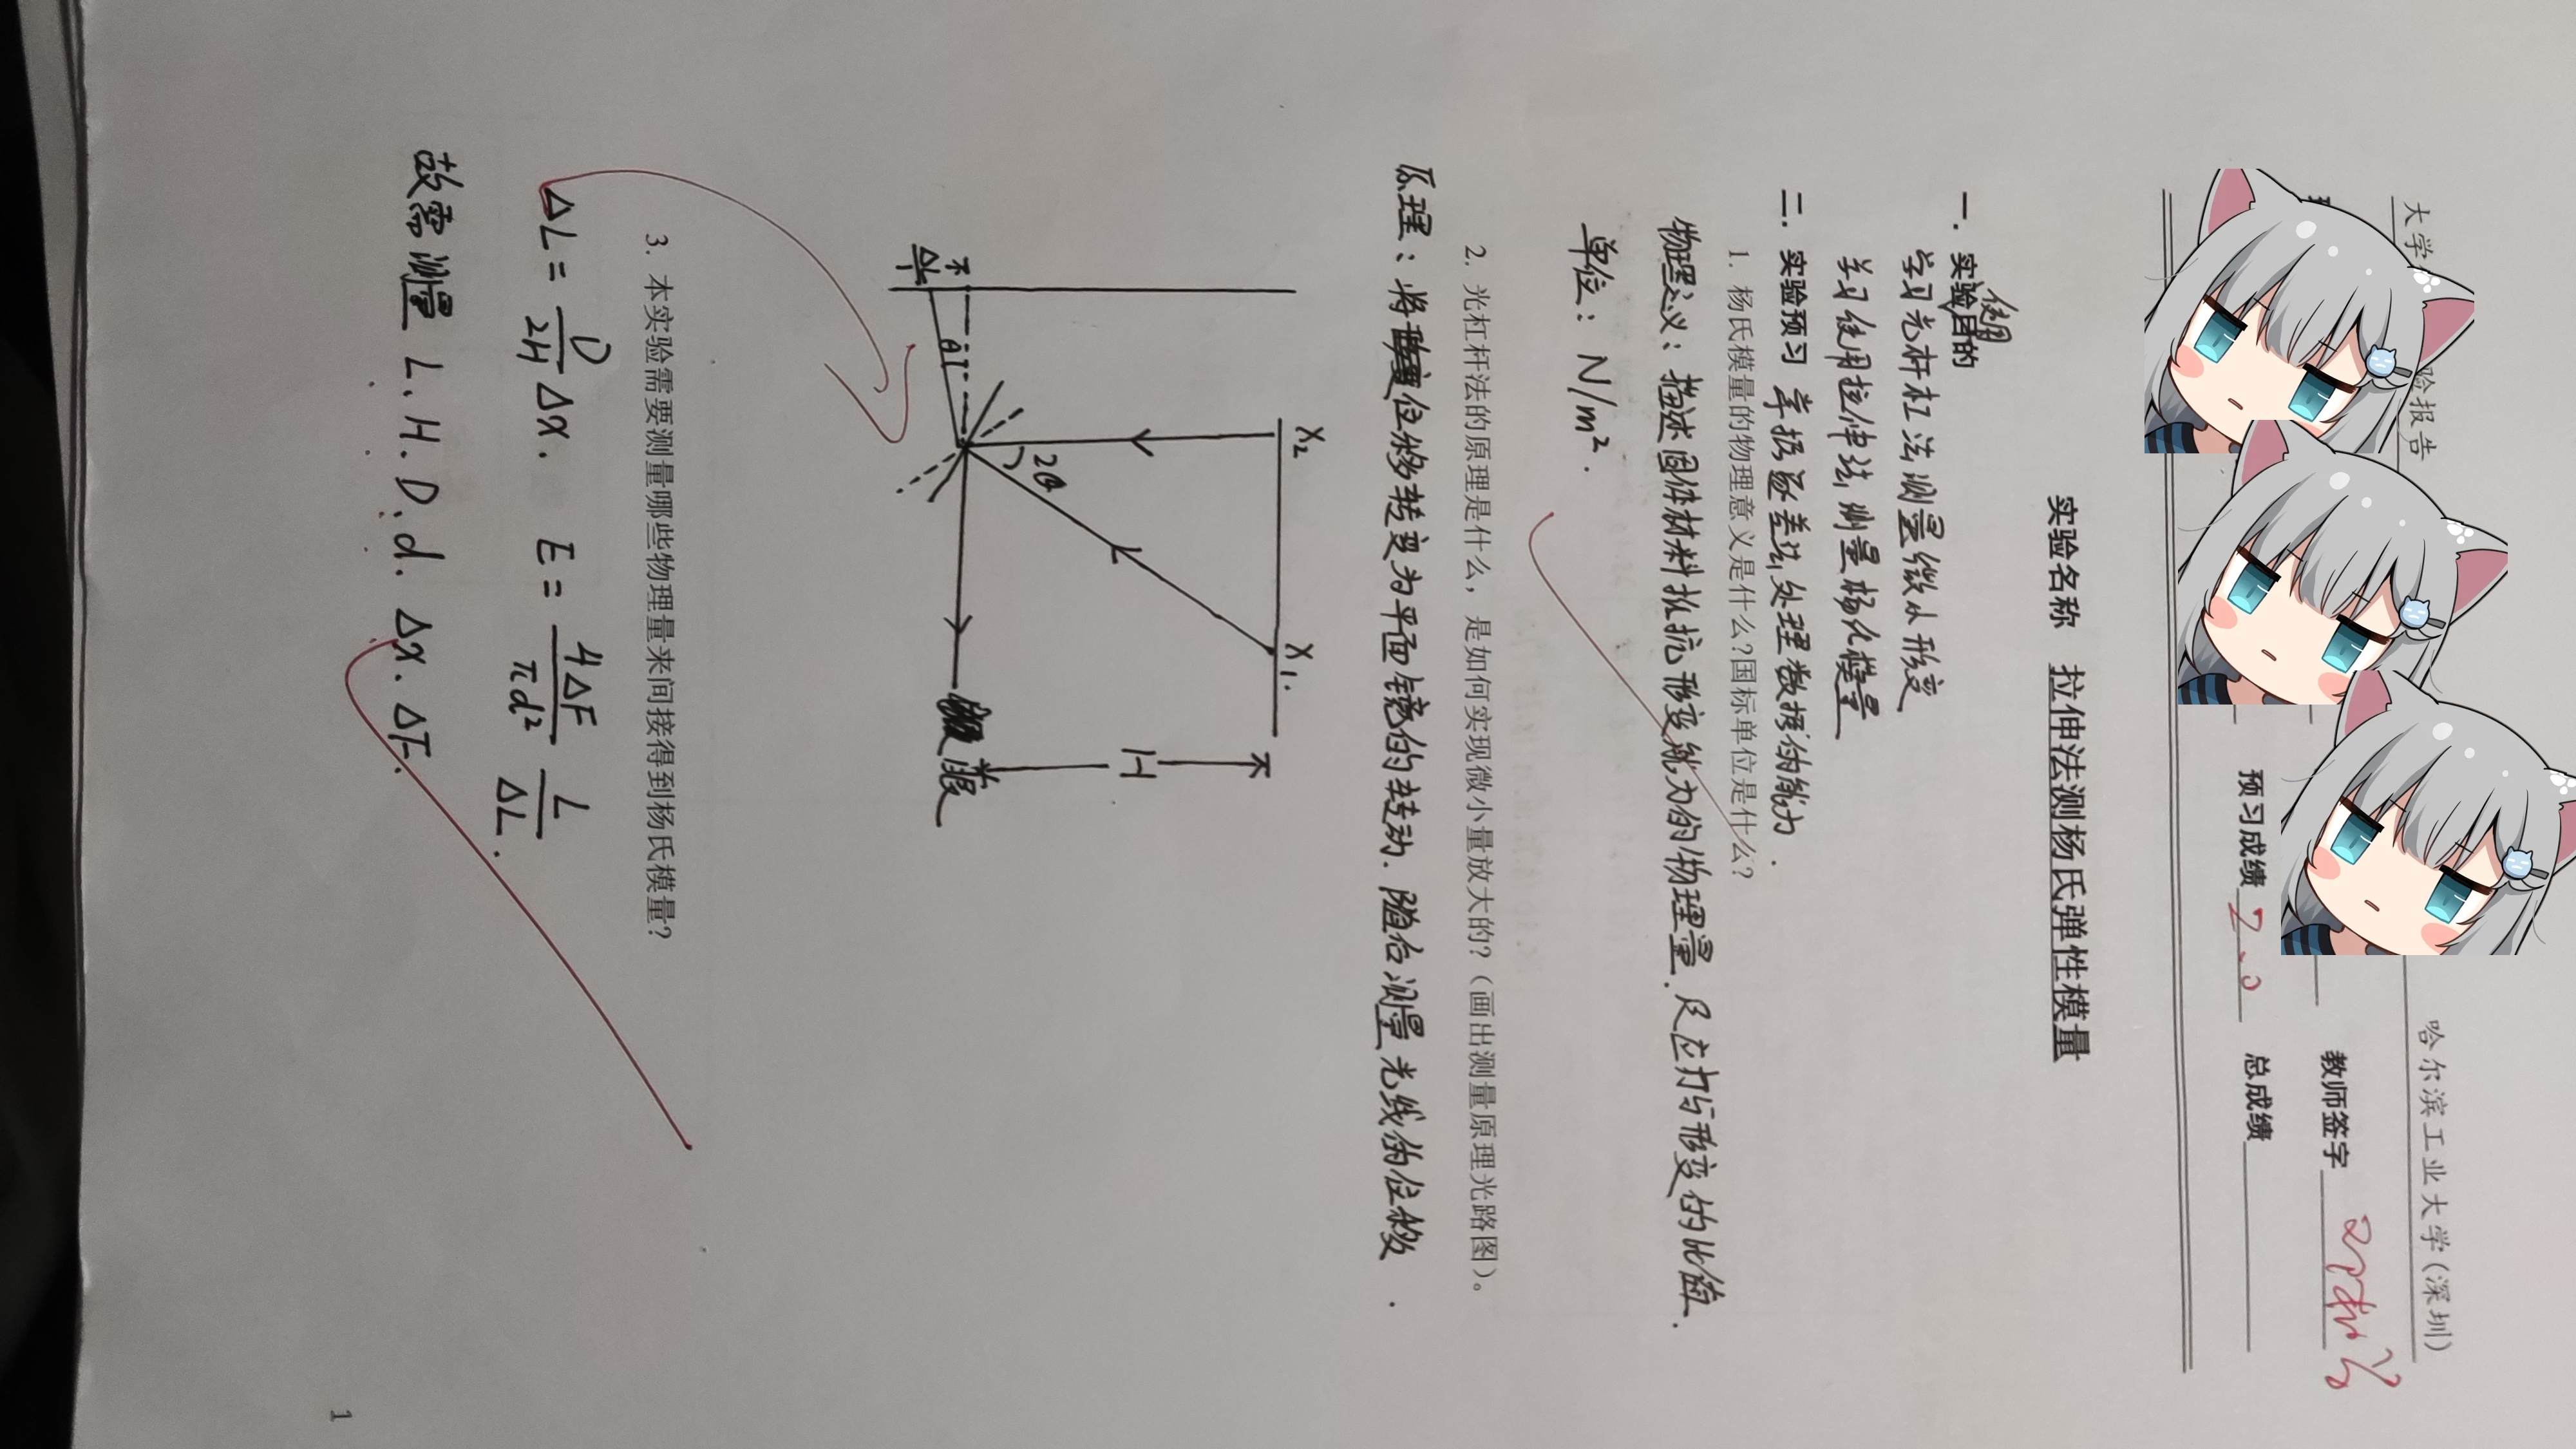 大学 验报告 哈尔滨工业大学(深圳)
教师签字
预习成绩 2.0 总成绩
实验名称 拉伸法测杨氏弹性模量
使用
一. 实验目的
学习光杆杠法测量微小形变
学习使用拉伸法测量杨氏模量
二. 实验预习 掌握逐差法处理数据的能力.
1. 杨氏模量的物理意义是什么?国标单位是什么?
物理意义: 描述固体材料抵抗形变能力的物理量. 是应力与形变的比值.
单位: N/m².
2. 光杠杆法的原理是什么，是如何实现微小量放大的?（画出测量原理光路图）。
原理: 将位移转变为平面镜的转动. 随后测量光线的位移.
X₂ X₁.
H
2θ
θ
ΔL
3. 本实验需要测量哪些物理量来间接得到杨氏模量?
ΔL = D/2H Δx. E = 4ΔF/πd² L/ΔL.
故需测量 L. H. D. d. Δx. ΔF.
1